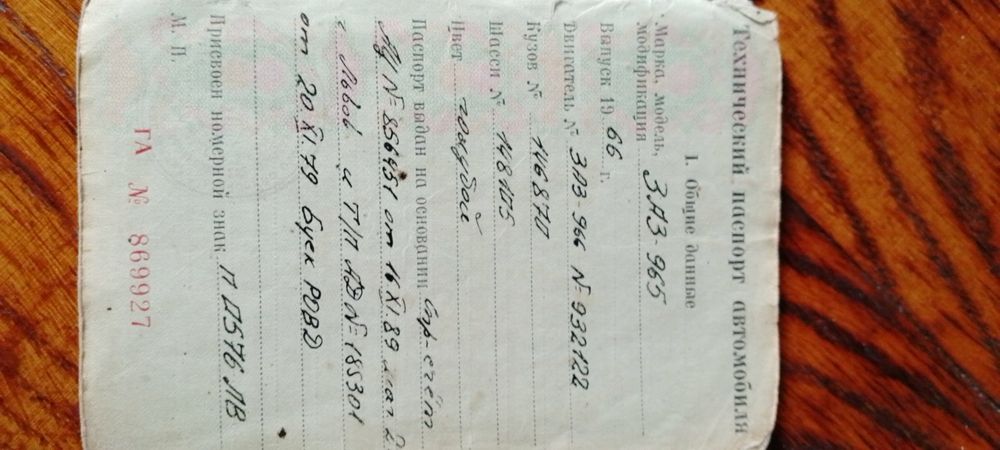 Технический паспорт автомобиля
1. Общие данные
Марка, модель,
модификация ЗАЗ-965
Выпуск 19 66 г.
Двигатель № ЗАЗ-966 № 932122
Кузов № 146870
Шасси № 148105
Цвет голубой
Паспорт выдан на основании Спр-счёт
№ 856451 от 16.XI.89 маг 2
г Львов и т/п № 185301
от 20.XI.79 Буск РОВД
Присвоен номерной знак П 0576 ЛВ
М. П.
ГА № 869927